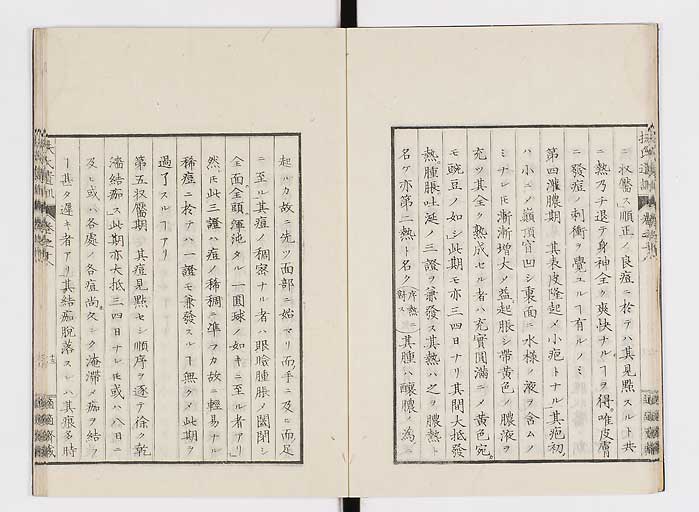 ニ収醫ス順正ノ良痘ニ於テハ其見點スルト共
ニ熱乃チ退テ身神全ク爽快ナルヿヲ得唯皮膚
ニ發痘ノ刺衝ヲ覺ユルヿ有ルノミ
第四灌膿期 其表皮隆起メ小疱トナル其疱初
ハ小ニメ巓頂官凹シ裏面ニ水様ノ液ヲ含ムノ
ミナレ𪜈漸漸増大メ益起脹シ帯黄色ノ膿液ヲ
充ツ其全ク熟成セル者ハ充實圓滿ニメ黄色宛
モ豌豆ノ如シ此期モ亦三四日ナリ其間大抵發
熱腫脹吐涎ノ三證ヲ兼發ス其熱ハ之ヲ膿熱ト
名ケ亦第二熱ト名ク序熱ニ對ス其腫ハ釀膿ノ為ニ
起ルカ故ニ先ツ面部ニ始マリ而手ニ及ニ而足
ニ至ル其痘ノ稠密ナル者ハ眼瞼腫脹メ闔閉シ
全面全頭渾沌タル一圓球ノ如キニ至ル者アリ
然𪜈此三證ハ痘ノ稀稠ニ準フカ故ニ輕易ナル
稀痘ニ於テハ一證モ兼發スルヿ無クメ此期ヲ
過了スルヿアリ
第五収醫期 其痘見點セシ順序ヲ逐テ徐ク乾
瀋結痂ス此期亦大抵三四日ナレ𪜈或ハ八日ニ
及ヒ或ハ各處ノ各痘尚久シク淹滞メ痂ヲ結フ
ヿ甚タ遲キ者アリ其結痂脱落スレハ其痕多時
扶氏遺訓
十三